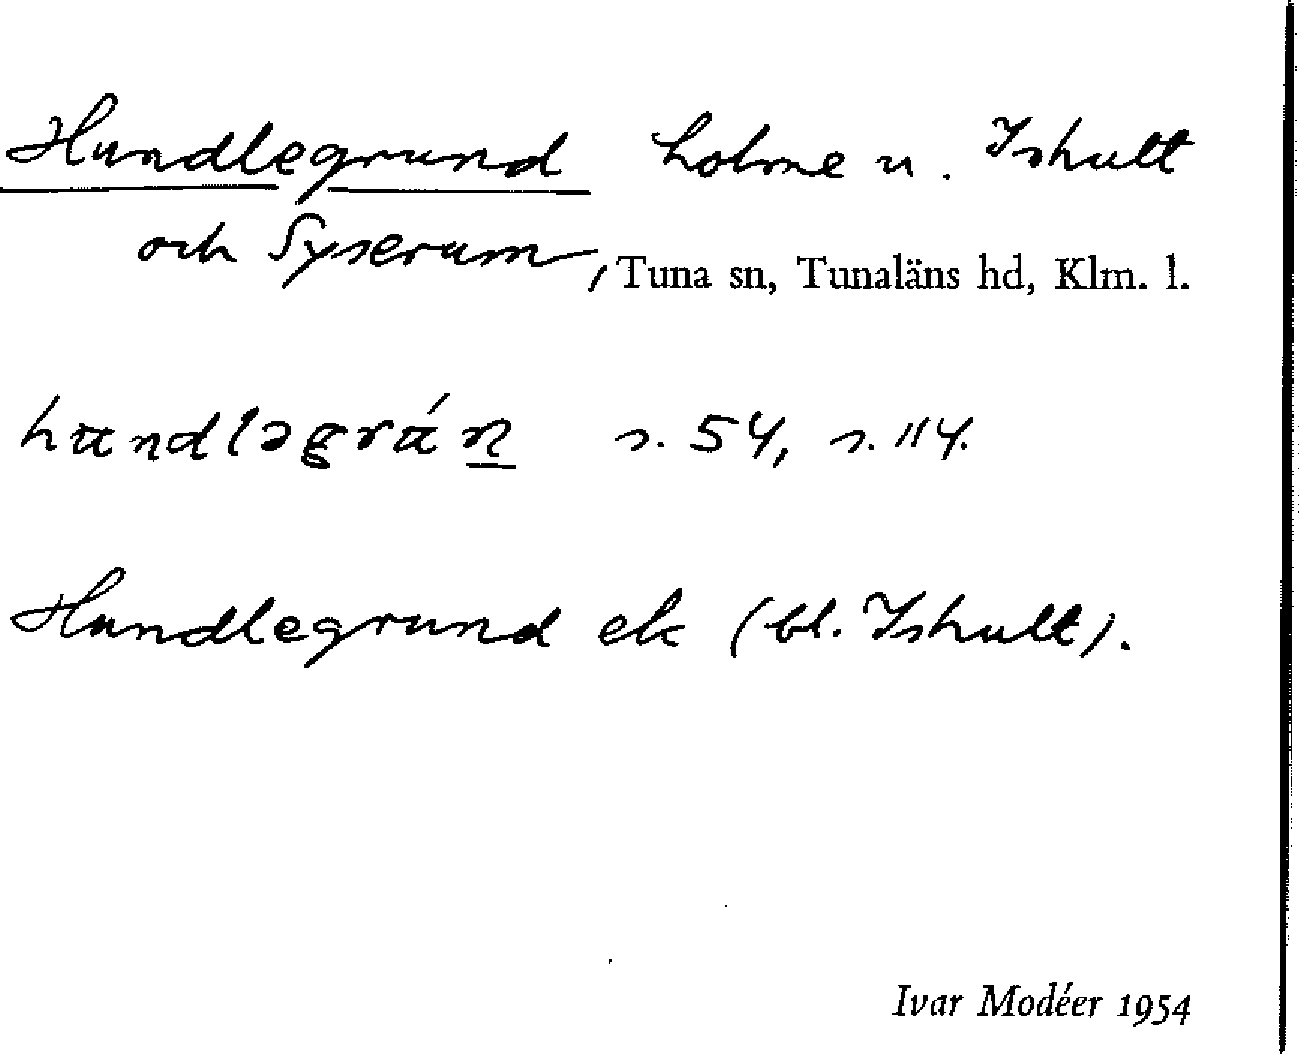 Hundlegrund holme u. Ishult
och Syserum,
Tuna sn, Tunaläns hd, Klm. l.
hundləgrún s. 54, s. 114.
Hundlegrund ek (bl. Ishult).
Ivar Modéer 1954